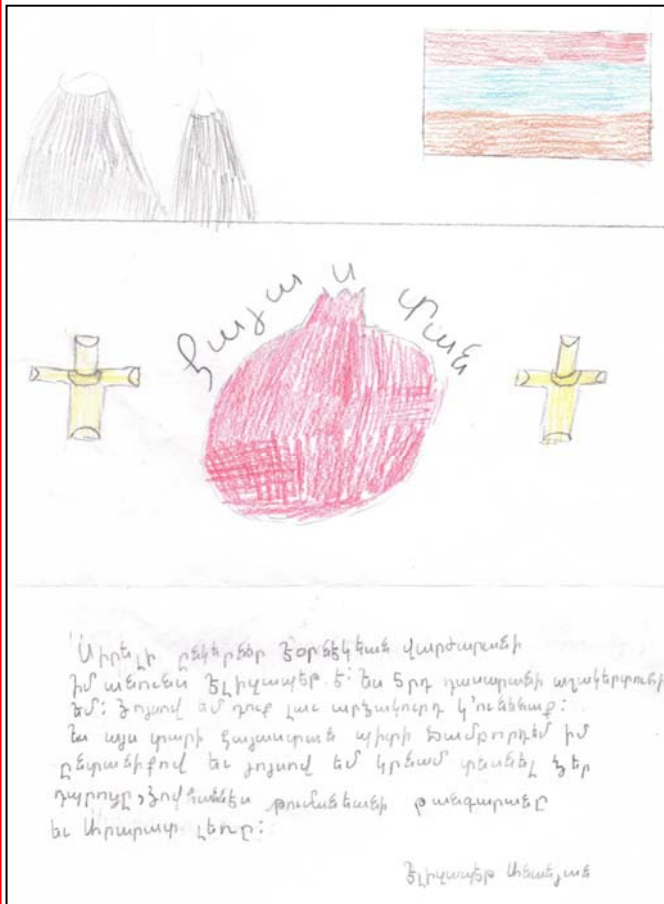 Հայաստան
Սիրելի ընկերներ վարժարանի
Իմ անունս Էլիզապէթ է: Ես 5րդ դասարանի աշակերտուհի
եմ: Յոյսով եմ դուք լաւ արձակուրդ կ'ունենաք:
Ես այս տարի Հայաստան պիտի ճամբորդեմ իմ
ընտանիքով եւ յոյսով եմ կրնամ տեսնել ձեր
դպրոցը Յովհաննէս Թումանեանի թանգարանը
եւ Արարատ լեռը:
Էլիզապէթ